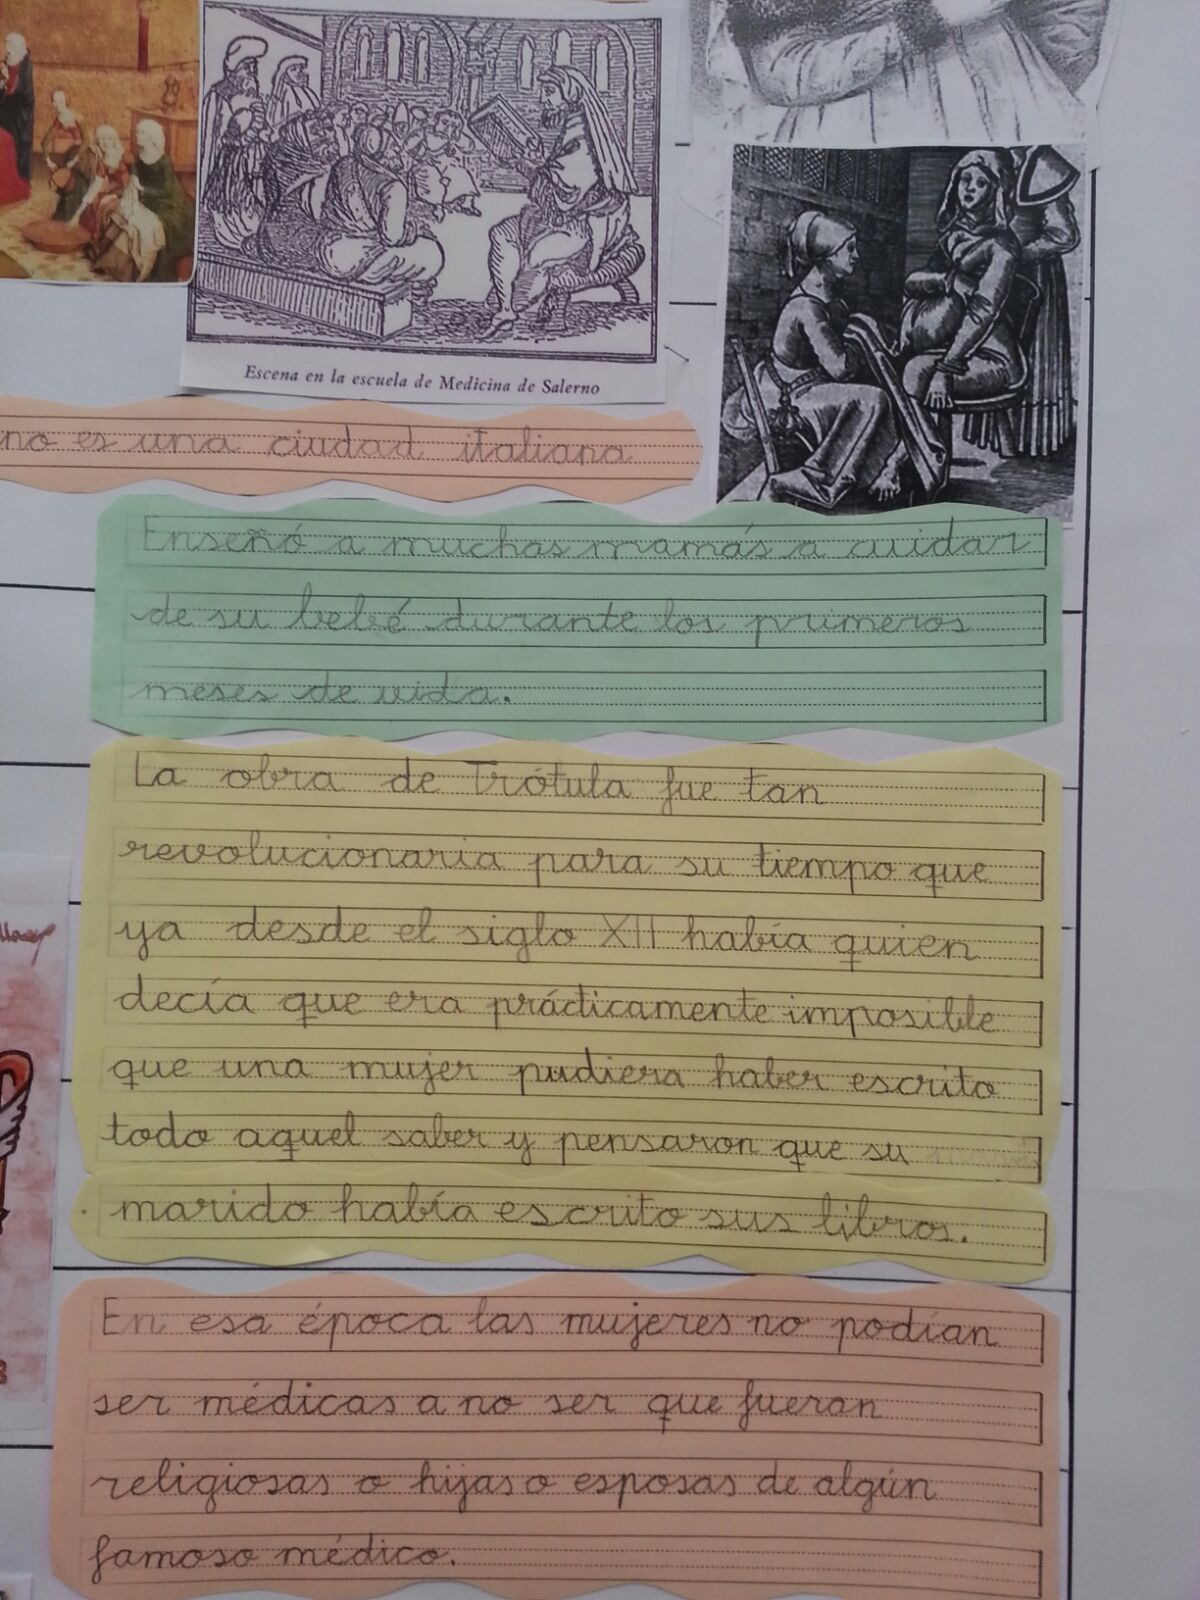 Escena en la escuela de Medicina de Salerno
no es una ciudad italiana
Enseñó a muchas mamás a cuidar
de su bebé durante los primeros
meses de vida.
La obra de Trótula fue tan
revolucionaria para su tiempo que
ya desde el siglo XII había quien
decía que era prácticamente imposible
que una mujer pudiera haber escrito
todo aquel saber y pensaron que su
marido había escrito sus libros.
En esa época las mujeres no podían
ser médicas a no ser que fueran
religiosas o hijas o esposas de algún
famoso médico.